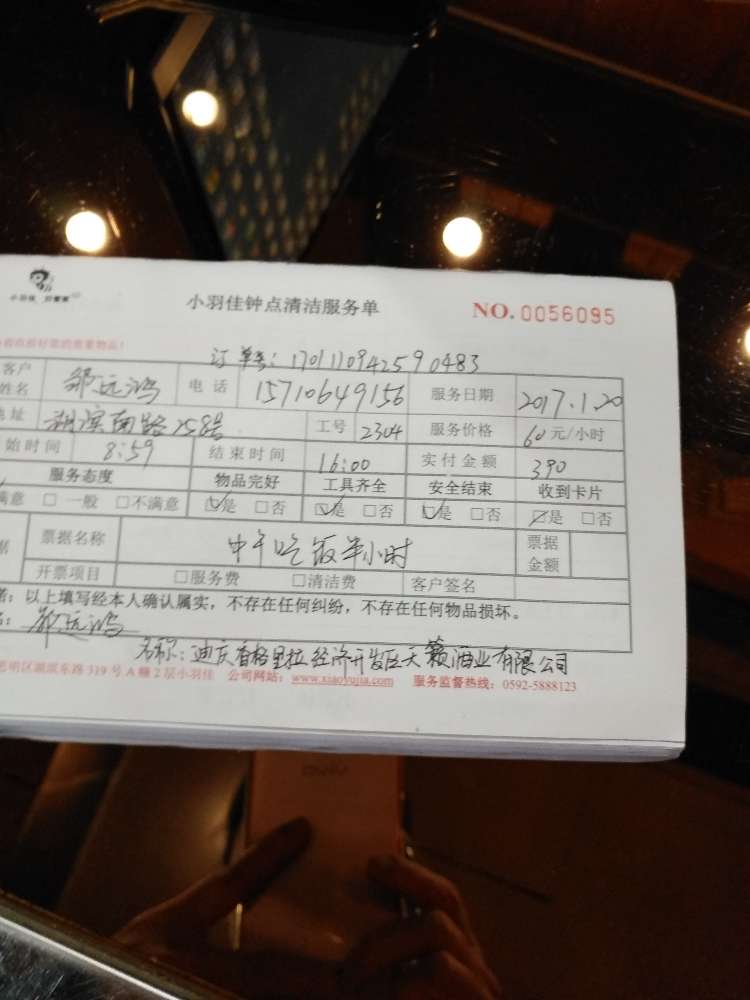 小羽佳
小羽佳钟点清洁服务单
NO. 0056095
订单号：170117094259 0483
客户姓名 邹远鸿 电话 15710649156 服务日期 2017.1.20
地址 湖滨南路258号 工号 2304 服务价格 60元/小时
始时间 8:59 结束时间 16:00 实付金额 390
服务态度 物品完好 工具齐全 安全结束 收到卡片
满意 □一般 □不满意 ☑是 □否 ☑是 □否 ☑是 □否 ☑是 □否
据 票据名称 中午吃饭半小时 票据金额
开票项目 □服务费 □清洁费 客户签名
：以上填写经本人确认属实，不存在任何纠纷，不存在任何物品损坏。
：邹远鸿
名称：迪庆香格里拉经济开发区天籁酒业有限公司
思明区湖滨东路319号A幢2层小羽佳 公司网站：www.xiaoyujia.com 服务监督热线：0592-5888123